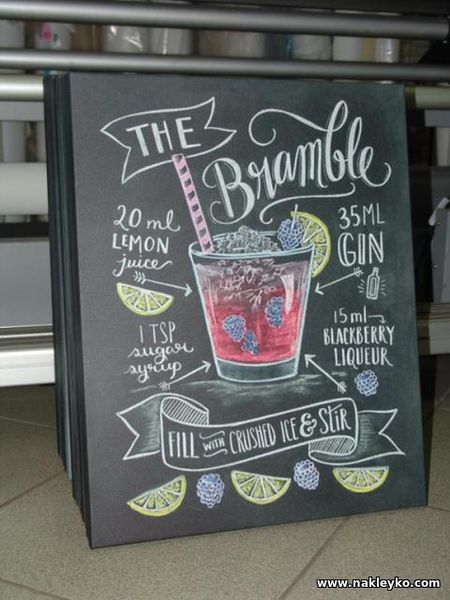 THE
Bramble
20 ml
LEMON
juice
35ML
GIN
1 TSP
sugar
syrup
15 ml
BLACKBERRY
LIQUEUR
FILL WITH CRUSHED ICE & STIR
www.nakleyko.com